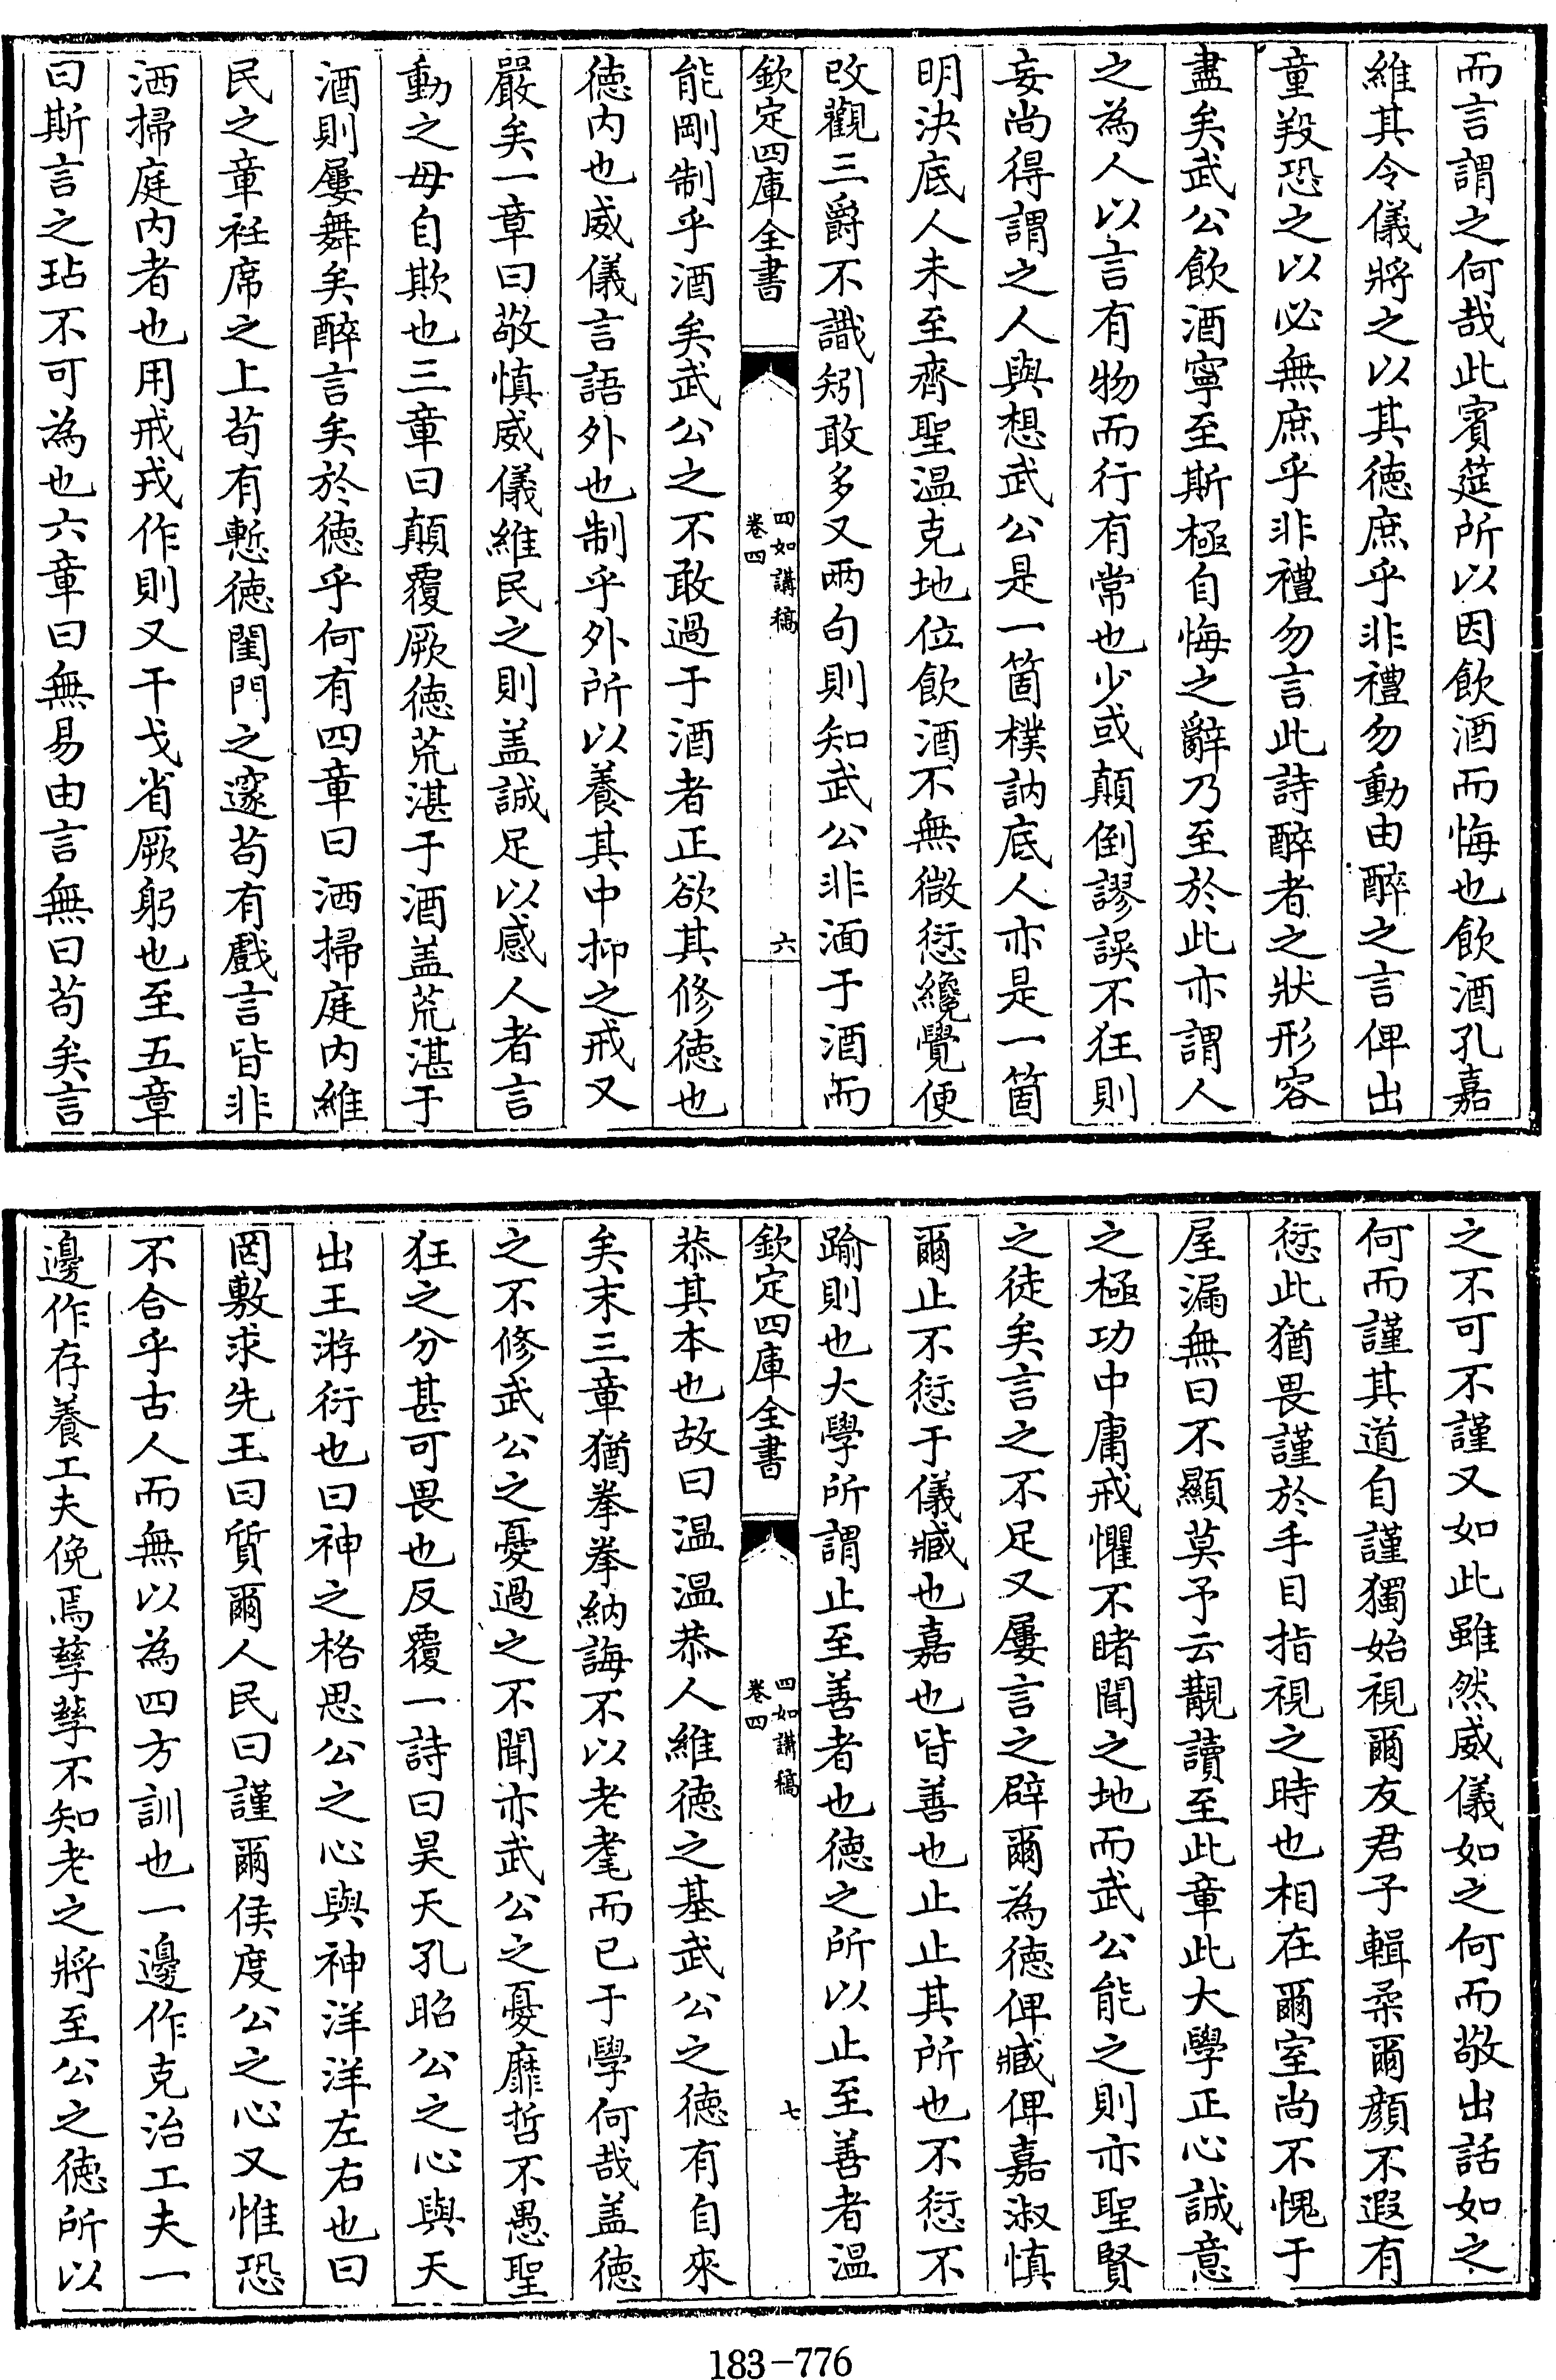 而言謂之何哉此賓筵所以因飲酒而悔也飲酒孔嘉
維其令儀將之以其徳庶乎非禮勿動由醉之言俾出
童羖恐之以必無庶乎非禮勿言此詩醉者之狀形容
盡矣武公飲酒寧至斯極自悔之辭乃至於此亦謂人
之為人以言有物而行有常也少或顛倒謬誤不狂則
妄尚得謂之人與想武公是一箇樸訥底人亦是一箇
明決底人未至齊聖温克地位飲酒不無微愆纔覺便
改觀三爵不識矧敢多又兩句則知武公非湎于酒而
欽定四庫全書
四如講稿
卷四
六
能剛制乎酒矣武公之不敢過于酒者正欲其修徳也
徳内也威儀言語外也制乎外所以養其中抑之戒又
嚴矣一章曰敬慎威儀維民之則盖誠足以感人者言
動之毋自欺也三章曰顛覆厥徳荒湛于酒盖荒湛于
酒則屢舞矣醉言矣於徳乎何有四章曰洒掃庭内維
民之章衽席之上苟有慙徳閨門之邃苟有戲言皆非
洒掃庭内者也用戒戎作則又干戈省厥躬也至五章
曰斯言之玷不可為也六章曰無易由言無曰苟矣言
之不可不謹又如此雖然威儀如之何而敬出話如之
何而謹其道自謹獨始視爾友君子輯柔爾顔不遐有
愆此猶畏謹於手目指視之時也相在爾室尚不愧于
屋漏無曰不顯莫予云覯讀至此章此大學正心誠意
之極功中庸戒懼不睹聞之地而武公能之則亦聖賢
之徒矣言之不足又屢言之辟爾為徳俾臧俾嘉淑慎
爾止不愆于儀臧也嘉也皆善也止止其所也不愆不
踰則也大學所謂止至善者也徳之所以止至善者温
欽定四庫全書
四如講稿
卷四
七
恭其本也故曰温温恭人維徳之基武公之徳有自來
矣末三章猶拳拳納誨不以老耄而已于學何哉盖徳
之不修武公之憂過之不聞亦武公之憂靡哲不愚聖
狂之分甚可畏也反覆一詩曰昊天孔昭公之心與天
出王游衍也曰神之格思公之心與神洋洋左右也曰
罔敷求先王曰質爾人民曰謹爾侯度公之心又惟恐
不合乎古人而無以為四方訓也一邊作克治工夫一
邊作存養工夫俛焉孳孳不知老之將至公之徳所以
183-776